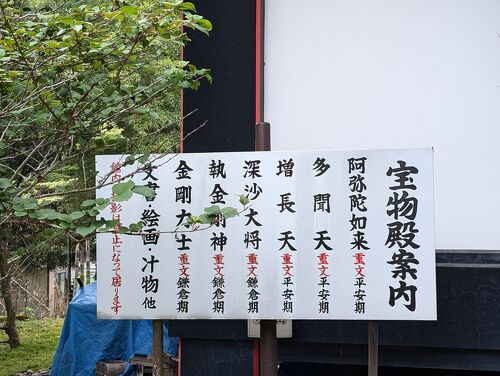 宝物殿案内
阿弥陀如来 重文 平安期
多聞天 重文 平安期
増長天 重文 平安期
深沙大将 重文 鎌倉期
執金剛神 重文 鎌倉期
金剛力士 重文 鎌倉期
文書・絵画・什物 他
館内 影は 止になって居ります